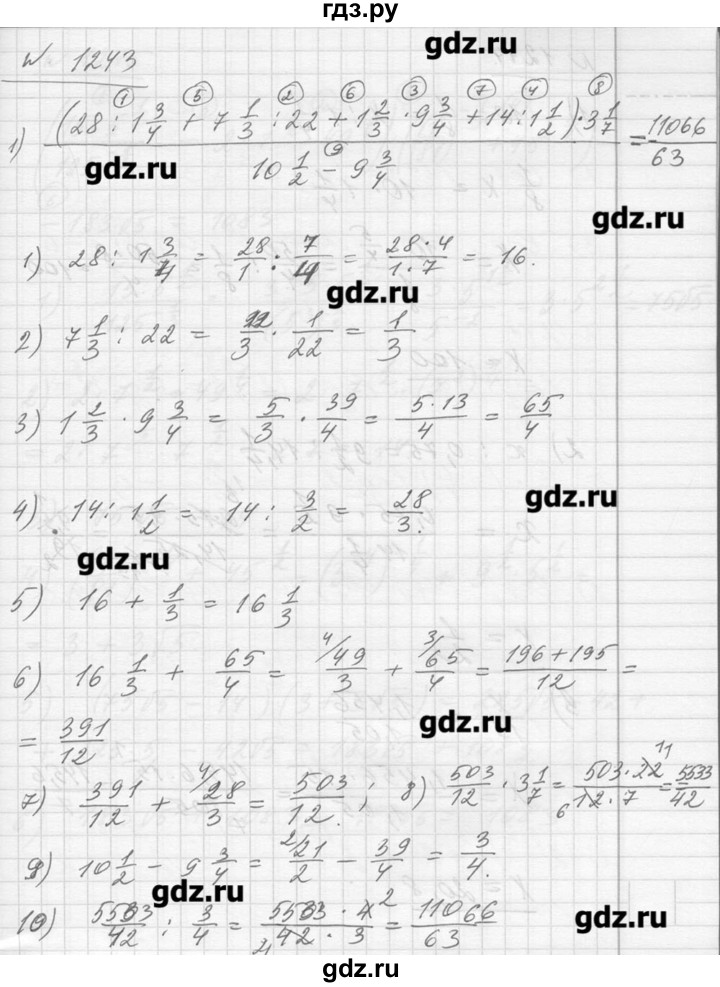 гдз.ру
gdz.ru
№ 1243
① ⑤ ② ⑥ ③ ⑦ ④ ⑧
1) (28 : 1 3/4 + 7 1/3 : 22 + 1 2/3 · 9 3/4 + 14 : 1 1/2) · 3 1/7 = 11066/63
gdz.ru
⑨
10 1/2 − 9 3/4
gdz.ru
1) 28 : 1 3/4 = 28/1 : 7/4 = 28·4/1·7 = 16.
gdz.ru
2) 7 1/3 : 22 = 22/3 · 1/22 = 1/3
3) 1 2/3 · 9 3/4 = 5/3 · 39/4 = 5·13/4 = 65/4
gdz.ru
4) 14 : 1 1/2 = 14 : 3/2 = 28/3.
gdz.ru
5) 16 + 1/3 = 16 1/3
6) 16 1/3 + 65/4 = 4/49/3 + 3/65/4 = 196+195/12 =
= 391/12
gdz.ru
7) 391/12 + 4/28/3 = 503/12 ; 8) 503/12 · 3 1/7 = 503·22 11/6 12·7 = 5533/42
9) 10 1/2 − 9 3/4 = 2/21/2 − 39/4 = 3/4.
gdz.ru
10) 5533/42 : 3/4 = 5533·4 2/21 42·3 = 11066/63
gdz.ru
gdz.ru